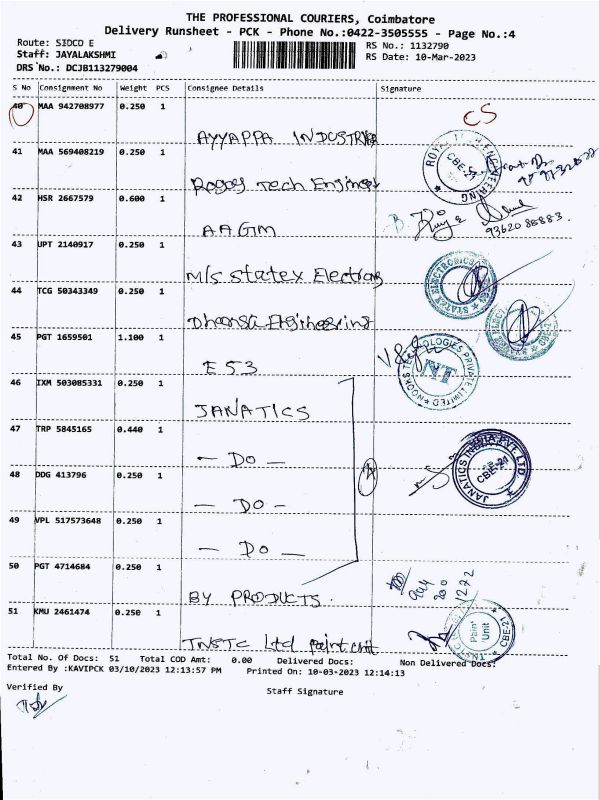 THE PROFESSIONAL COURIERS, Coimbatore
Delivery Runsheet - PCK - Phone No.:0422-3505555 - Page No.:4
Route: SIDCO E
RS No.: 1132790
Staff: JAYALAKSHMI
RS Date: 10-Mar-2023
DRS No.: DCJB113279004
S No Consignment No Weight PCS Consignee Details Signature
40 MAA 942708977 0.250 1 CS
AYYAPPA
41 MAA 569408219 0.250 1
Tech
42 HSR 2667579 0.600 1
AAGIM
9362088883.
43 UPT 2140917 0.250 1
M/s Statex
44 TCG 50343349 0.250 1
Engineering
45 PGT 1659501 1.100 1
E 53
NOOKS TECHNOLOGIES PRIVATE LIMITED NT
46 IXM 503085331 0.250 1
JANATICS
47 TRP 5845165 0.440 1
- DO -
JANATICS INDIA PVT. LTD CBE-21
48 DDG 413796 0.250 1
- DO -
49 VPL 517573648 0.250 1
- DO -
50 PGT 4714684 0.250 1
BY PRODUCTS.
51 KMU 2461474 0.250 1
TNSTC Ltd paint unit
TNSTC Paint Unit CBE-21
Total No. Of Docs: 51 Total COD Amt: 0.00 Delivered Docs: Non Delivered Docs:
Entered By :KAVIPCK 03/10/2023 12:13:57 PM Printed On: 10-03-2023 12:14:13
Verified By
Staff Signature